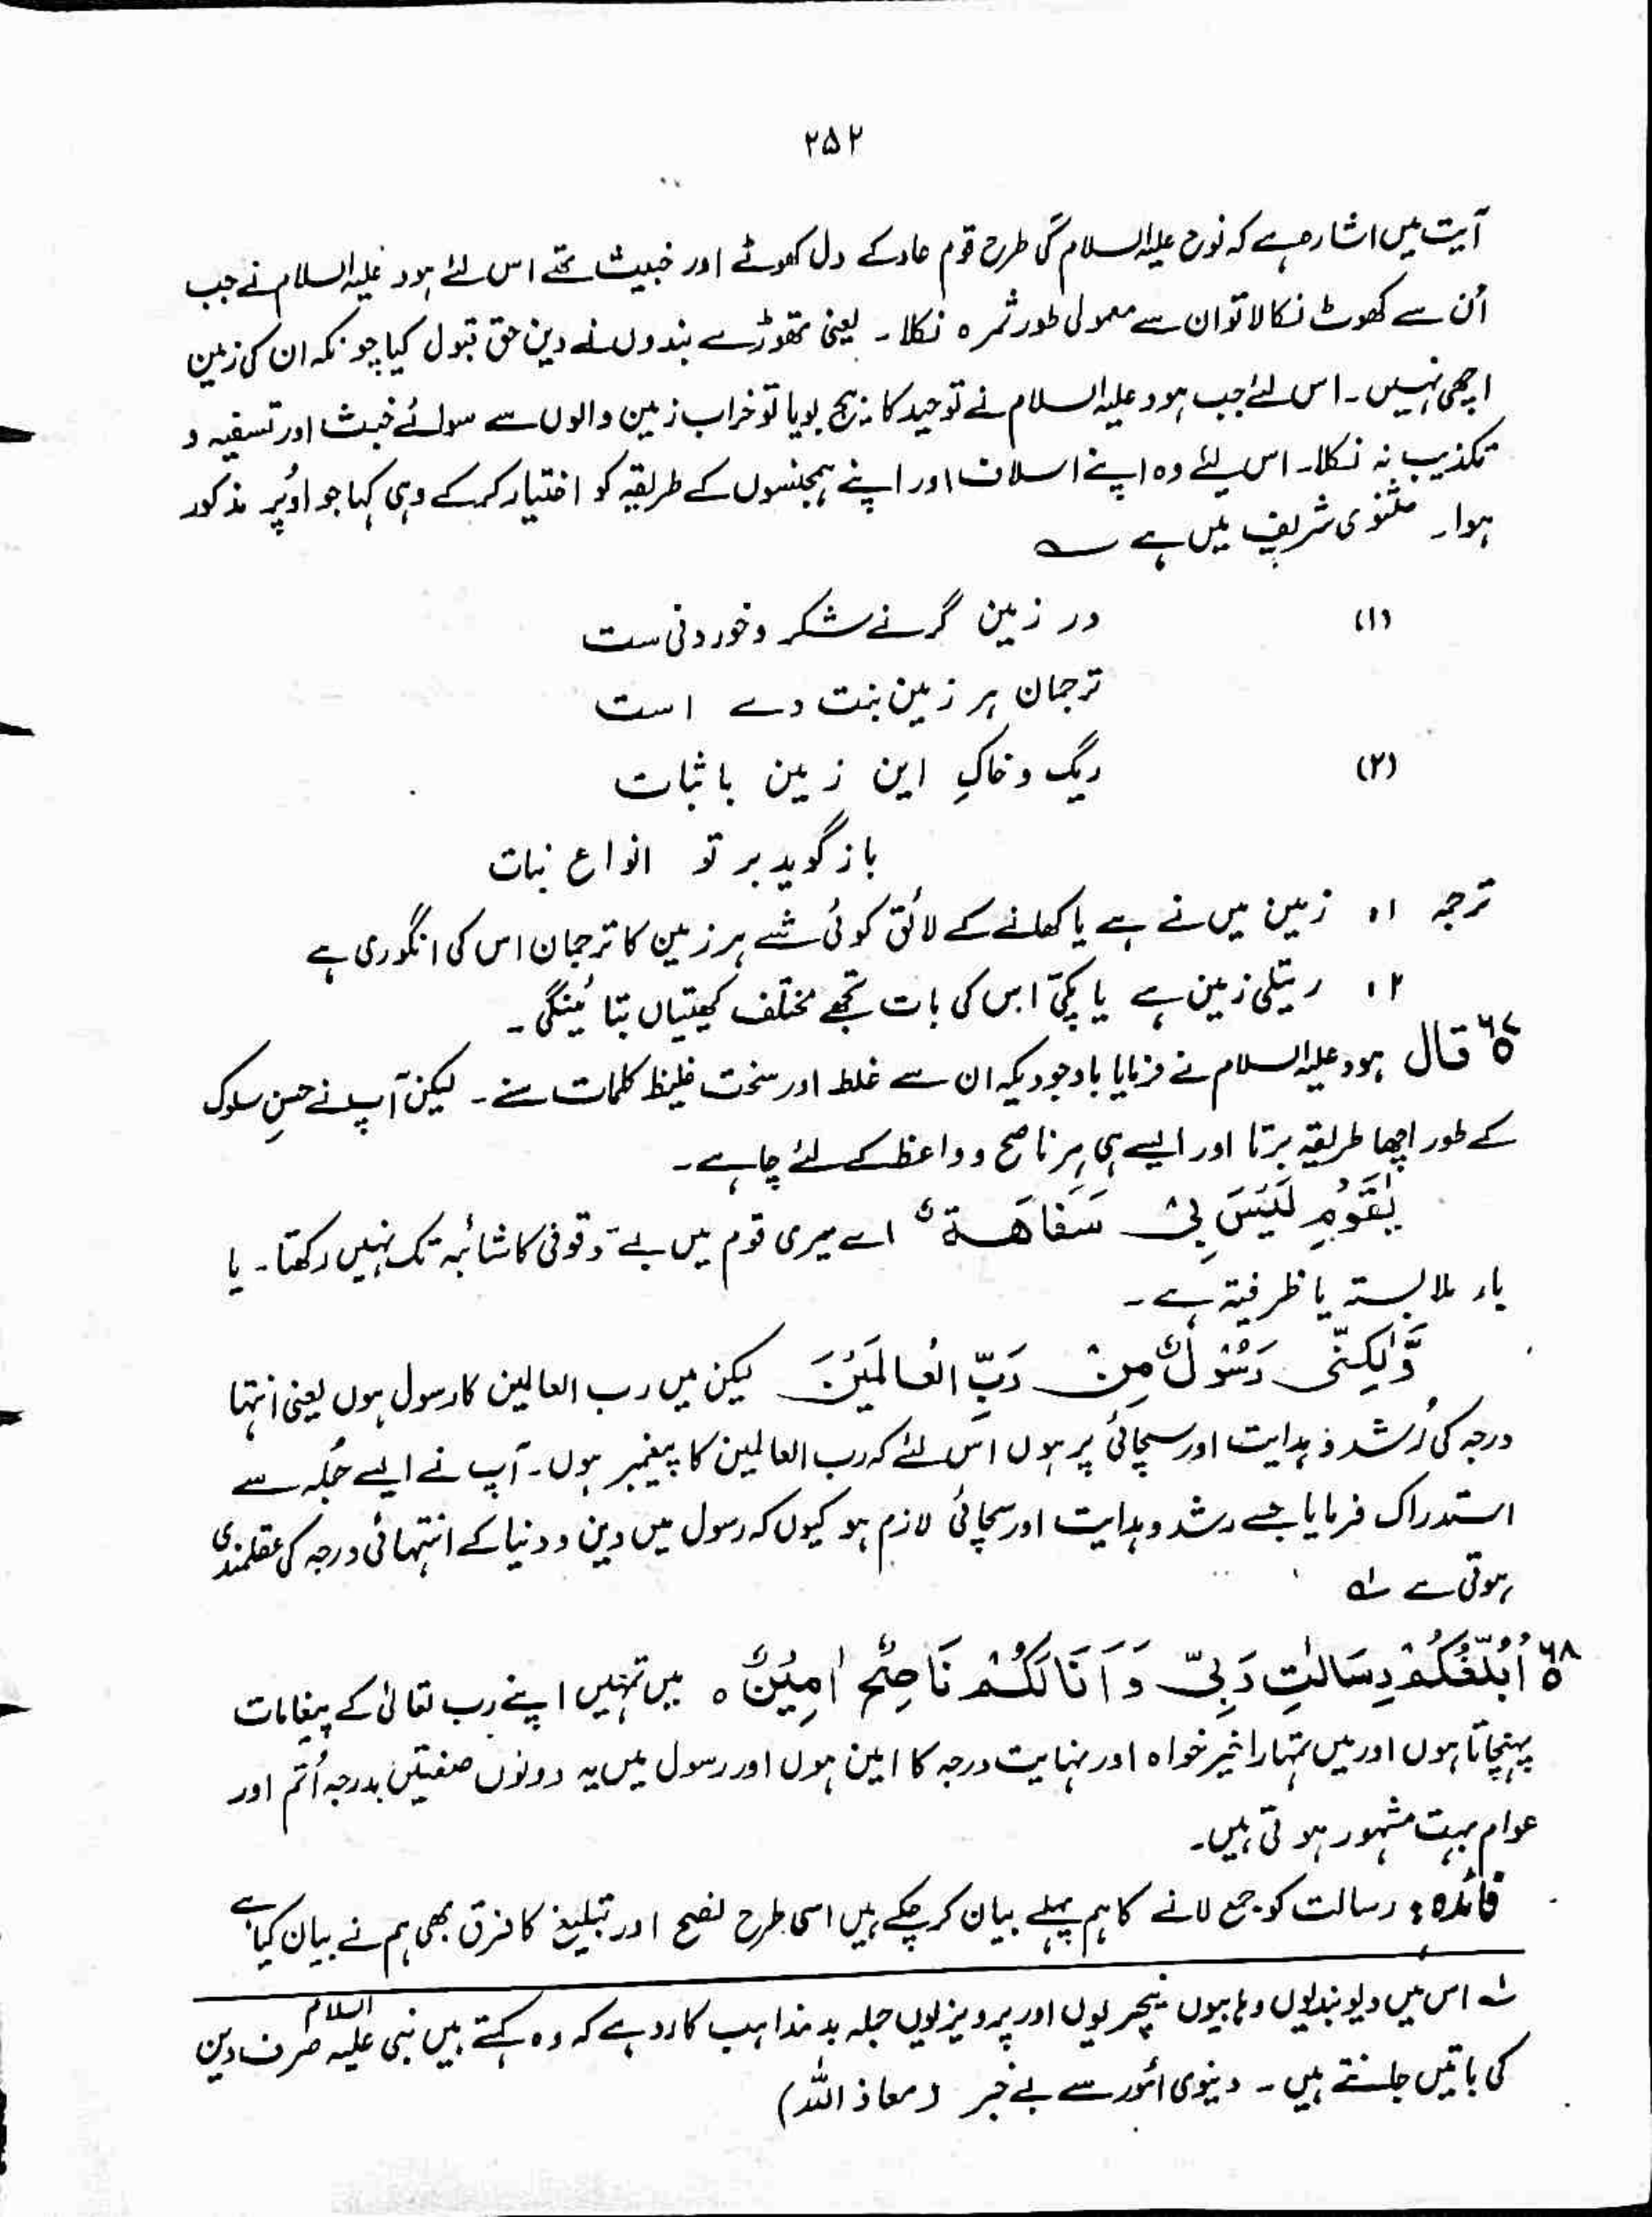 ۲۵۲
آیت میں اشارہ ہے کہ نوح علیہ السلام کی طرح قوم عاد کے دل کھوٹے اور خبیث تھے اس لئے ہود علیہ السلام نے جب
اُن سے کھوٹ نکالا تو ان سے معمولی طور ثمرہ نکلا ۔ یعنی تھوڑے بندوں نے دین حق قبول کیا چونکہ ان کی زمین
اچھی نہیں ۔ اس لئے جب ہود علیہ السلام نے توحید کا بیج بویا تو خراب زمین والوں سے سوائے خبث اور تسفیہ و
تکذیب نہ نکلا۔ اس لئے وہ اپنے اسلاف اور اپنے ہمجنسوں کے طریقہ کو اختیار کر کے وہی کہا جو اوُپر مذکور
ہوا۔ مثنوی شریف میں ہے ؎
(۱) در زمین گر نے شکر و خوردنی ست
ترجمان ہر زمین بنت وے است
(۲) ریگ و خاکِ این زمین با ثبات
باز گوید بر تو انواع نبات
ترجمہ ۱، زمین میں نے ہے یا کھانے کے لائق کوئی شے ہر زمین کا ترجمان اس کی انگوری ہے
۲، ریتلی زمین ہے یا پکی اس کی بات تجھے مختلف کھیتیاں بتائینگی ۔
۶۷ قال ہود علیہ السلام نے فرمایا باوجودیکہ ان سے غلط اور سخت غلیظ کلمات سنے ۔ لیکن آپ نے حسنِ سلوک
کے طور اچھا طریقہ برتا اور ایسے ہی ہر ناصح و واعظ کے لئے چاہے ۔
یٰقَوْمِ لَیْسَ بِیْ سَفَاهَةٌ اے میری قوم میں بے وقوفی کا شائبہ تک نہیں رکھتا۔ یا
باء ملابستہ یا ظرفیتہ ہے ۔
وَّلٰکِنِّیْ رَسُوْلٌ مِنْ رَبِّ الْعَالَمِیْنَ لیکن میں رب العالمین کا رسول ہوں یعنی انتہا
درجہ کی رُشد و ہدایت اور سچائی پر ہوں اس لئے کہ رب العالمین کا پیغمبر ہوں۔ آپ نے ایسے جُملہ سے
استدراک فرمایا جسے رشد و ہدایت اور سچائی لازم ہو کیوں کہ رسول میں دین و دنیا کے انتہائی درجہ کی عقلمندی
ہوتی ہے ؎
۶۸ اُبَلِّغُکُمْ رِسَالٰتِ رَبِّیْ وَ اَنَا لَکُمْ نَاصِحٌ اَمِیْنٌ ہ میں تمہیں اپنے رب تعالیٰ کے پیغامات
پہنچاتا ہوں اور میں تمہارا خیر خواہ اور نہایت درجہ کا امین ہوں اور رسول میں یہ دونوں صفتیں بدرجہ اُتم اور
عوام بہت مشہور ہوتی ہیں۔
فائدہ : رسالت کو جمع لانے کا ہم پہلے بیان کر چکے ہیں اسی طرح نصح اور تبلیغ کا فرق بھی ہم نے بیان کیا ہے
؎ اس میں دیوبندیوں وہابیوں نیچریوں اور پرویزیوں جملہ بد مذاہب کا رد ہے کہ وہ کہتے ہیں نبی علیہ السلام صرف دین
کی باتیں جانتے ہیں ۔ دنیوی اُمور سے بے خبر (معاذ اللہ)